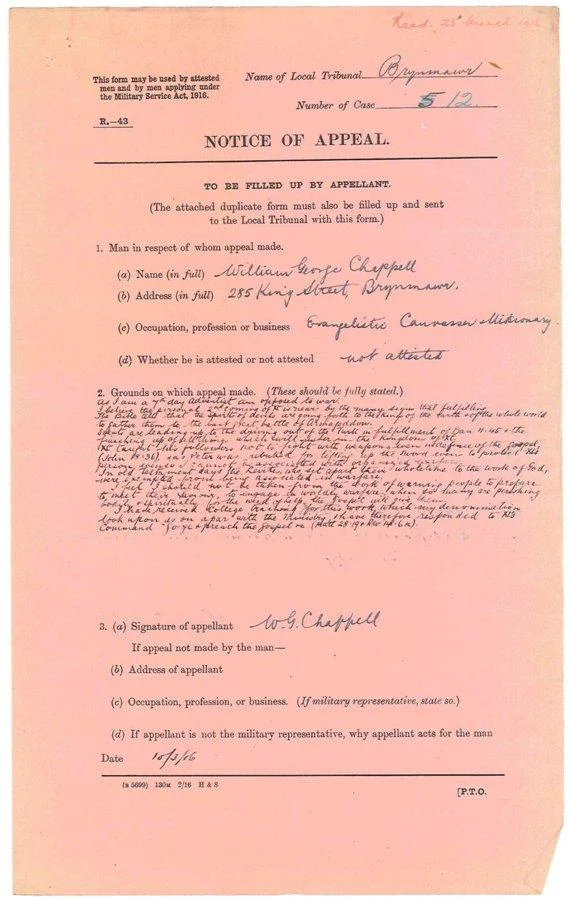 Recd. 25 March 1916
This form may be used by attested
men and by men applying under
the Military Service Act, 1916.
R.—43
Name of Local Tribunal Brynmawr
Number of Case 512
NOTICE OF APPEAL.
TO BE FILLED UP BY APPELLANT.
(The attached duplicate form must also be filled up and sent
to the Local Tribunal with this form.)
1. Man in respect of whom appeal made.
(a) Name (in full) William George Chappell
(b) Address (in full) 285 King Street, Brynmawr.
(c) Occupation, profession or business Evangelistic Canvasser Missionary
(d) Whether he is attested or not attested not attested
2. Grounds on which appeal made. (These should be fully stated.)
As I am a 7th day Adventist am opposed to war.
I believe the personal 2nd coming of Xt is near by the many signs that fulfilling
The Bible tells that the spirits of devils are going forth to the Kings of the earth & of the whole world
to gather them to the last great battle of Armageddon.
Events are leading up to the driving out of the Turk in fulfillment of Dan 11:45 & the
finishing up of all things which will usher in the Kingdom of Xt
Xt taught His followers not to fight with weapons even in defence of the Gospel,
(John 18:36) and Peter was rebuked for lifting up the sword even to protect His
person
In old testament days the Levites, who set apart them wholetime to the work of God,
were exempted from being associated in warfare.
I feel I should not be taken from the work of warning people to prepare
to meet their Saviour, to engage in worldly warfare, when so many are perishing
bodily & spiritually for the need of help the Gospel will give them.
I have received College training for this work which my denomination
look upon as on a par with the Ministry & have therefore responded to His
Command to go & preach the Gospel (Matt 28.19 & Rev 14.6.12).
3. (a) Signature of appellant W.G. Chappell
If appeal not made by the man—
(b) Address of appellant
(c) Occupation, profession, or business. (If military representative, state so.)
(d) If appellant is not the military representative, why appellant acts for the man
Date 10/3/16
(B 5699) 130M 2/16 H & S
[P.T.O.